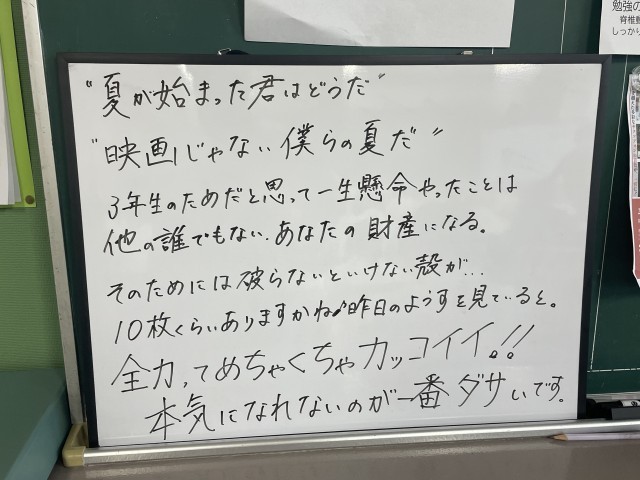 "夏が始まった君はどうだ"
"映画じゃない僕らの夏だ"
3年生のためだと思って一生懸命やったことは
他の誰でもない、あなたの財産になる。
そのためには破らないといけない殻が...
10枚くらいありますかね♪昨日のようすを見ていると。
全力、てめちゃくちゃカッコイイ!!
本気になれないのが一番ダサいです。
勉強の
脊椎動
しっかり